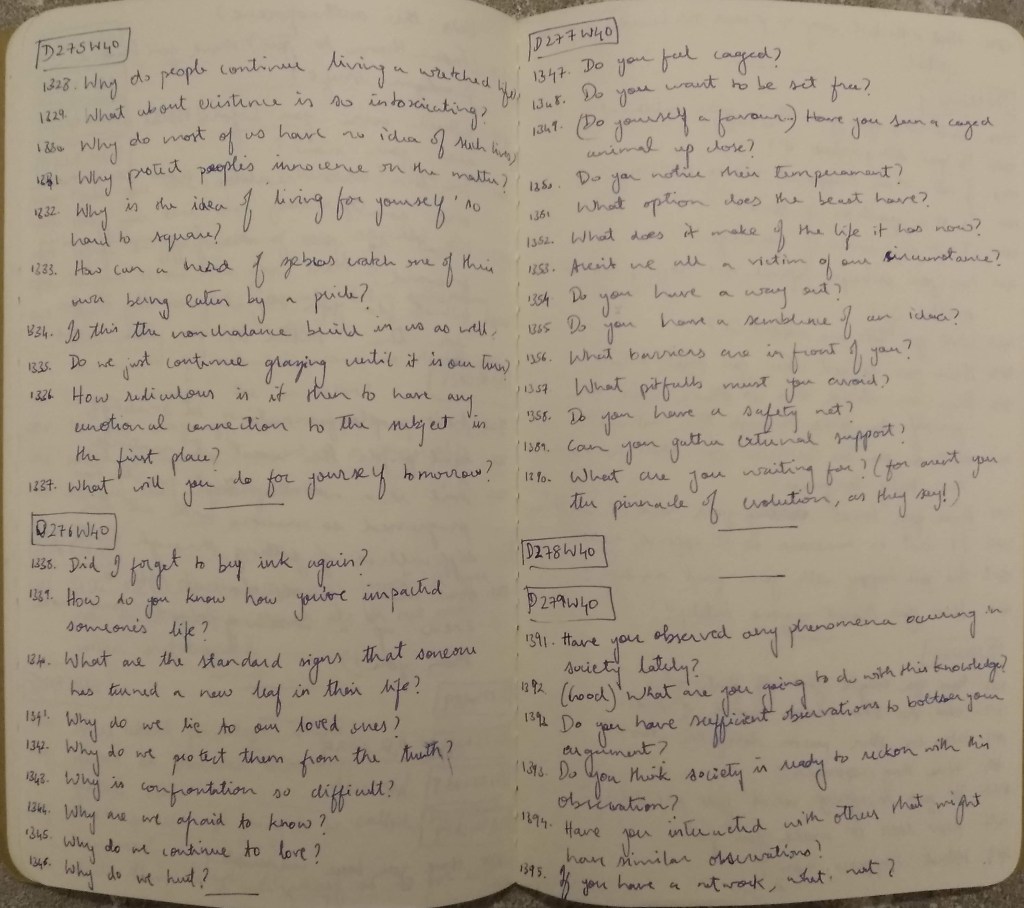 D275W40
1328. Why do people continue living a wretched life?
1329. What about existence is so intoxicating?
1330. Why do most of us have no idea of such lives?
1331. Why protect people's innocence on the matter?
1332. Why is the idea of 'living for yourself' so
hard to square?
1333. How can a herd of zebras watch one of their
own being eaten by a pride?
1334. Is this the nonchalance build in us as well.
1335. Do we just continue grazing until it is our turn?
1336. How ridiculous is it then to have any
emotional connection to the subject in
the first place?
1337. What will you do for yourself tomorrow?
D276W40
1338. Did I forget to buy ink again?
1339. How do you know how you've impacted
someone's life?
1340. What are the standard signs that someone
has turned a new leaf in their life?
1341. Why do we lie to our loved ones?
1342. Why do we protect them from the truth?
1343. Why is confrontation so difficult?
1344. Why are we afraid to know?
1345. Why do we continue to love?
1346. Why do we hurt?
D277W40
1347. Do you feel caged?
1348. Do you want to be set free?
1349. (Do yourself a favour..) Have you seen a caged
animal up close?
1350. Do you notice their temperament?
1351. What option does the beast have?
1352. What does it make of the life it has now?
1353. Aren't we all a victim of our circumstance?
1354. Do you have a way out?
1355. Do you have a semblance of an idea?
1356. What barriers are in front of you?
1357 What pitfalls must you avoid?
1358. Do you have a safety net?
1389. Can you gather external support?
1390. What are you waiting for? (for aren't you
the pinnacle of evolution, as they say!)
D278W40
D279W40
1391. Have you observed any phenomena occuring in
society lately?
1392 (Good) What are you going to do with this knowledge?
1392 Do you have sufficient observations to bolster your
argument?
1393. Do you think society is ready to reckon with this
observation?
1394. Have you interacted with others that might
have similar observations?
1395. If you have a network, what, not?